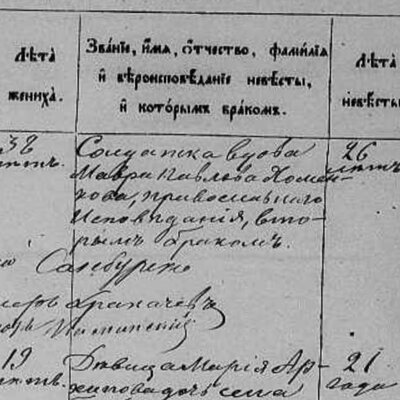 Лѣта жениха.
Званіе, имя, отчество, фамилія и вѣроисповѣданіе невѣсты, и которымъ бракомъ.
Лѣта невѣсты
38 лѣтъ.
Солдатка вдова
Мавра Павлова Хомен-
кова, православнаго
исповѣданія, вто-
рымъ бракомъ.
26 лѣтъ
19 лѣтъ.
Дѣвица Марія Ар-
хипова дочь села
21 года